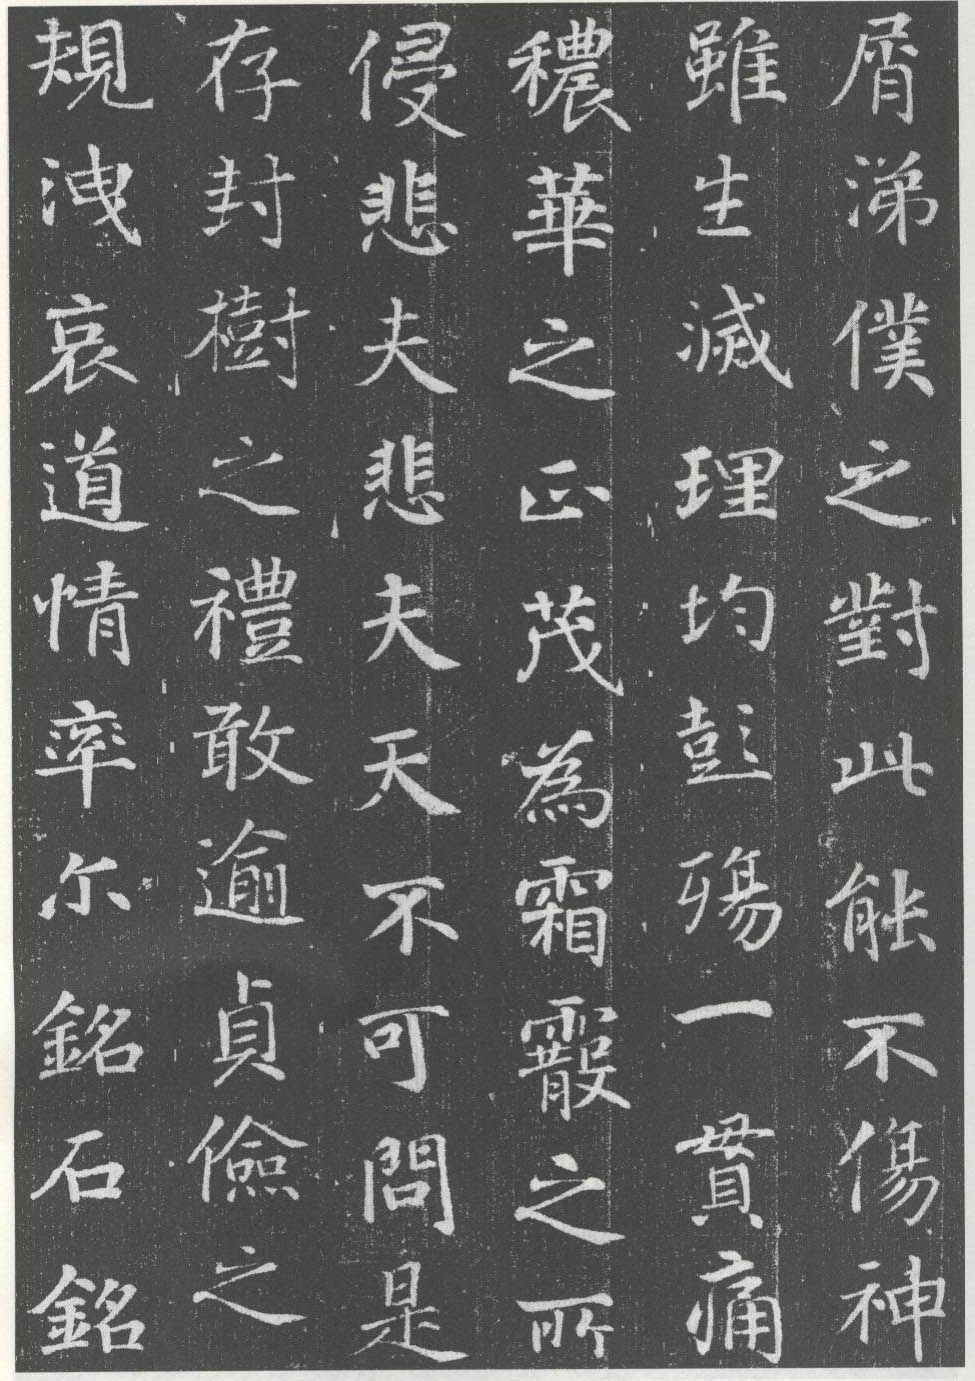 屑涕僕之對此能不傷神
雖生滅理均彭殤一貫痛
穠華之正茂為霜霰之所
侵悲夫悲夫天不可問是
存封樹之禮敢逾貞儉之
規洩哀道情率尔銘石銘